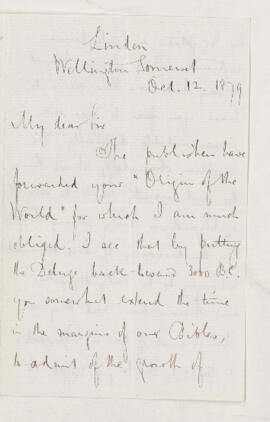 Linden
Wellington Somerset
Oct. 12. 1879
My dear Sir
The publishers have
forwarded your "Origin of the
World" for which I am much
obliged. I see that by putting
the Deluge back beyond 3000 B.C.
you somewhat extend the time
in the margins of our Bibles,
to admit of the growth of